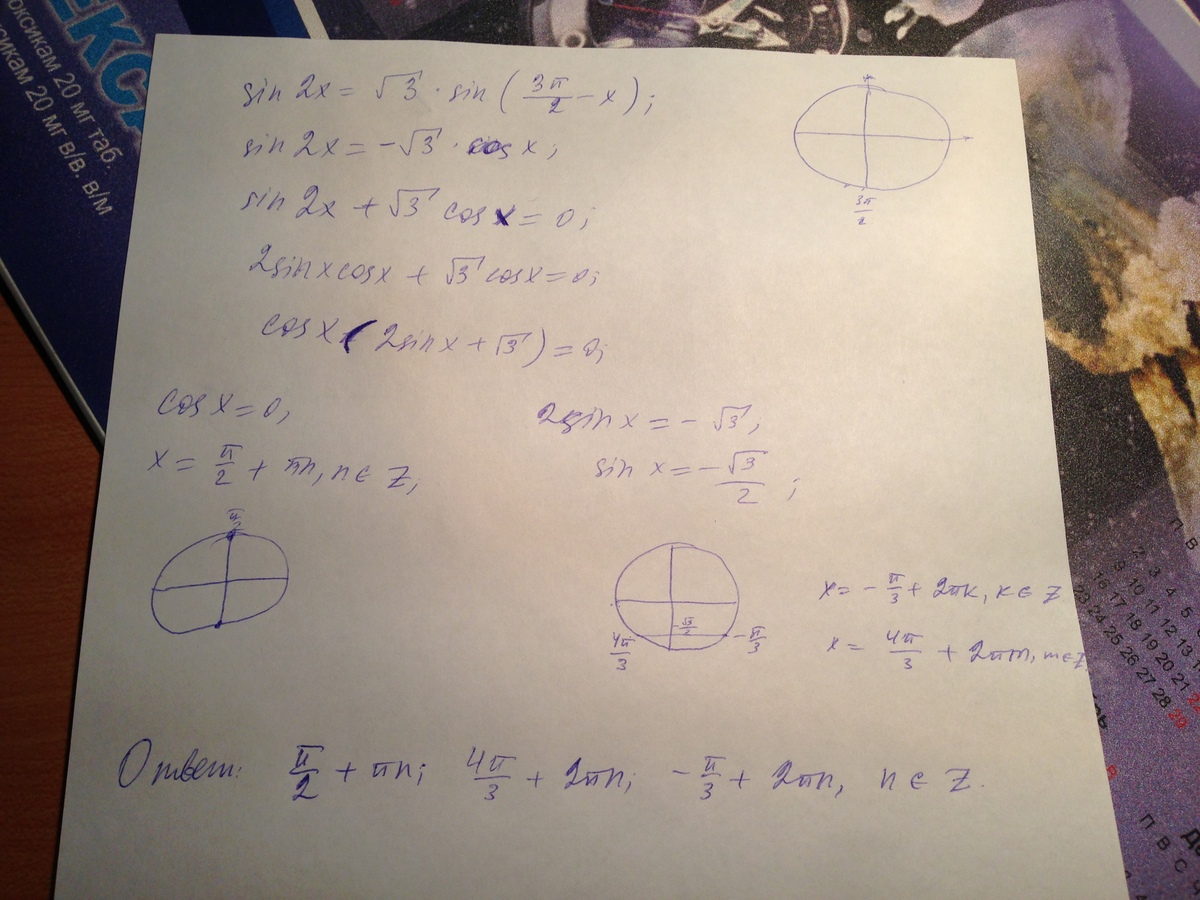 ЕКС
оксикам 20 мг таб.
сикам 20 мг в/в. в/м
sin 2x = √3 · sin (3π/2 − x);
sin 2x = −√3 · cos x;
sin 2x + √3 cos x = 0;
2sin x cos x + √3 cos x = 0;
cos x (2sin x + √3) = 0;
3π/2
cos x = 0,
x = π/2 + πn, n ∈ Z;
π/2
2sin x = −√3,
sin x = −√3/2;
−√3/2
4π/3
−π/3
x = −π/3 + 2πk, k ∈ Z
x = 4π/3 + 2πm, m ∈ Z
Ответ: π/2 + πn; 4π/3 + 2πn; −π/3 + 2πn, n ∈ Z.
П В
2 3
9 10 11 12 13
16 17 18 19 20 21
23 24 25 26 27 28 29
П В С